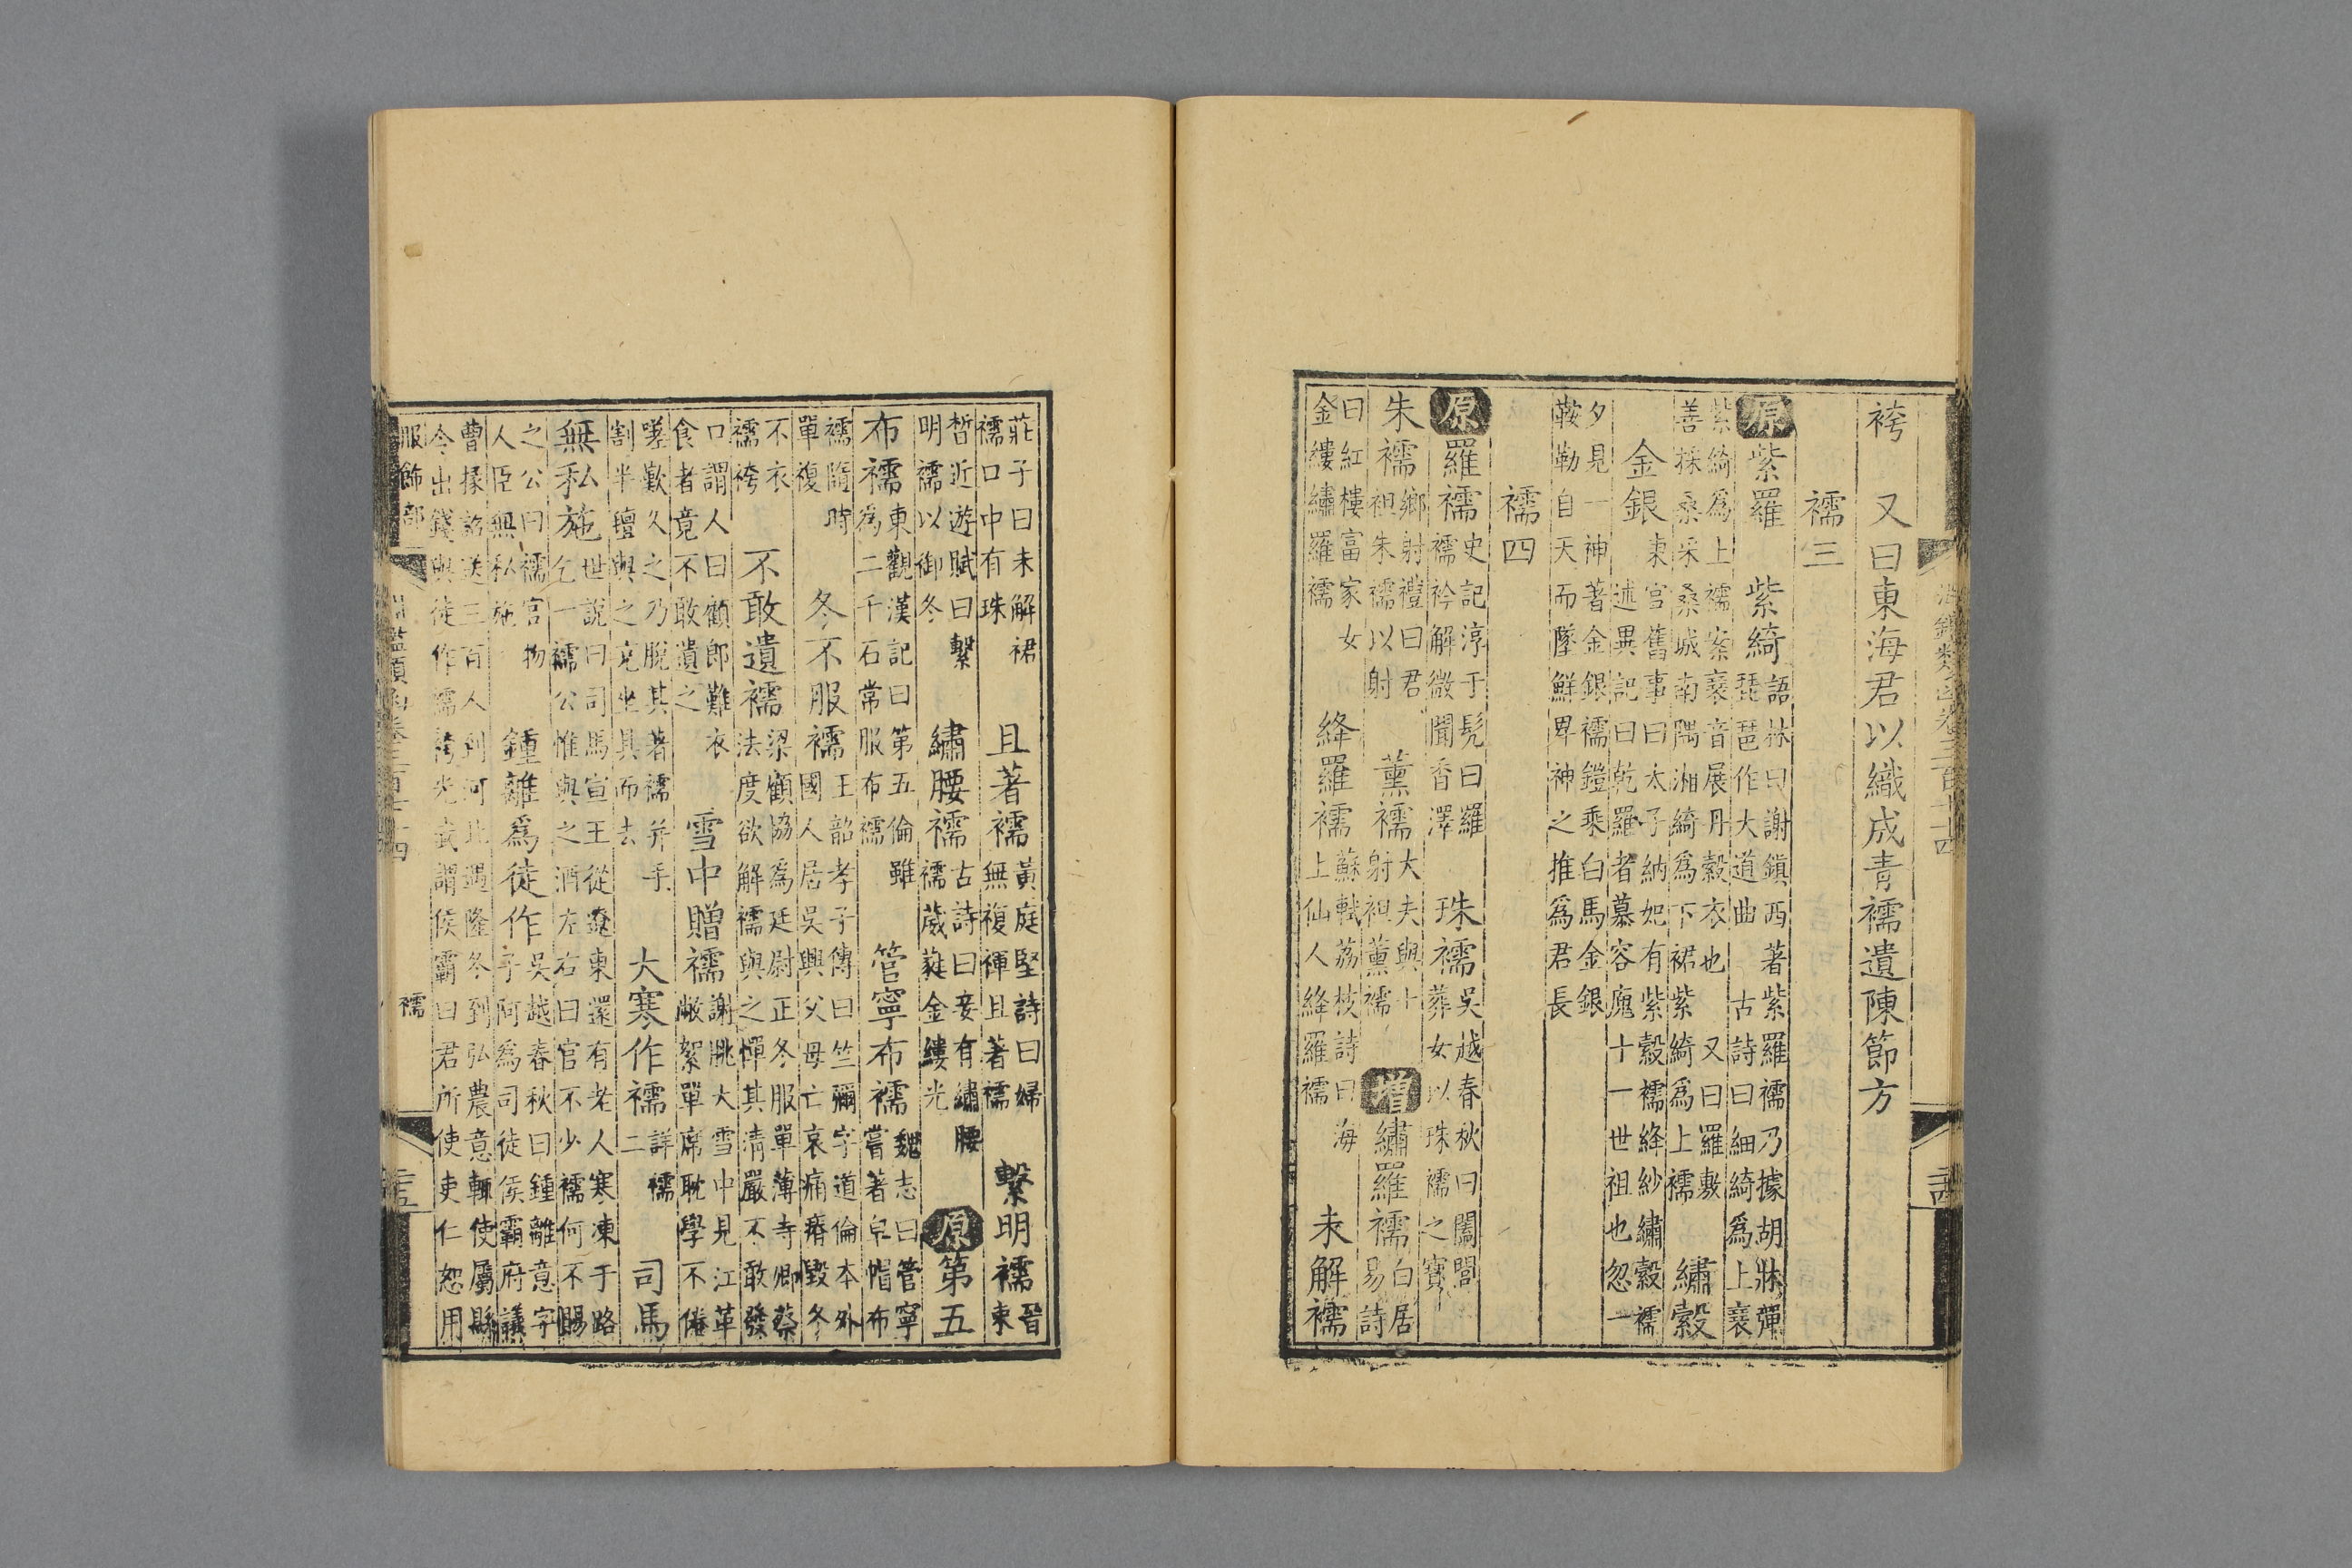 袴 又曰東海君以織成青襦遺陳節方
襦三
原紫羅 紫綺 語林曰謝鎮西著紫羅襦乃據胡牀彈
琵琶作大道曲 古詩曰細綺爲上襄
紫綺爲上襦案襄音展丹縠衣也 又曰羅敷
善採桑采桑城南隅湘綺爲下裙紫綺爲上襦 繡縠
金銀 東宮舊事曰太子納妃有紫縠襦絳紗繡縠襦
述異記曰乾羅者慕容廆十一世祖也忽一
夕見一神著金銀襦鎧乘白馬金銀
鞍勒自天而墜鮮卑神之推爲君長
襦四
原羅襦 史記淳于髡曰羅襦衿解微聞香澤 珠襦 吳越春秋曰闔閭葬女以珠襦之寶
朱襦 鄉射禮曰君袒朱襦以射 薰襦 大夫與士射袒薰襦 增繡羅襦 白居易詩
曰紅樓富家女金縷繡羅襦 絳羅襦 蘇軾荔枝詩曰海上仙人絳羅襦 未解襦
莊子曰未解裙襦口中有珠 且著襦 黃庭堅詩曰婦無複褌且著襦 繫明襦 晉束
晳近遊賦曰繫明襦以御冬 繡腰襦 古詩曰妾有繡腰襦葳蕤金縷光 原第五
布襦 東觀漢記曰第五倫雖爲二千石常服布襦 管寧布襦 魏志曰管寧嘗著皁帽布
襦隨時單複 冬不服襦 王韶孝子傳曰竺彌字道倫本外國人居吳興父母亡哀痛瘠毀冬
不衣襦袴 不敢遺襦 梁顧協爲廷尉正冬服單薄寺卿蔡法度欲解襦與之憚其清嚴不敢發
口謂人曰顧郎難衣食者竟不敢遺之 雪中贈襦 謝朓大雪中見江革敝絮單席耽學不倦
嗟歎久之乃脫其著襦并手割半氊與之充坐具而去 大寒作襦 詳襦二 司馬
無私施 世說曰司馬宣王從遼東還有老人寒凍于路乞一襦公惟與之酒左右曰官不少襦何不賜
之公曰襦官物人臣無私施 鍾離爲徒作 吳越春秋曰鍾離意字子阿爲司徒侯霸府議
曹掾詔送三百人到河北遇隆冬到弘農意輒使屬縣令出錢與徒作襦袴光武謂侯霸曰君所使吏仁恕用
服飾部 淵鑑類函卷三百七十四 襦